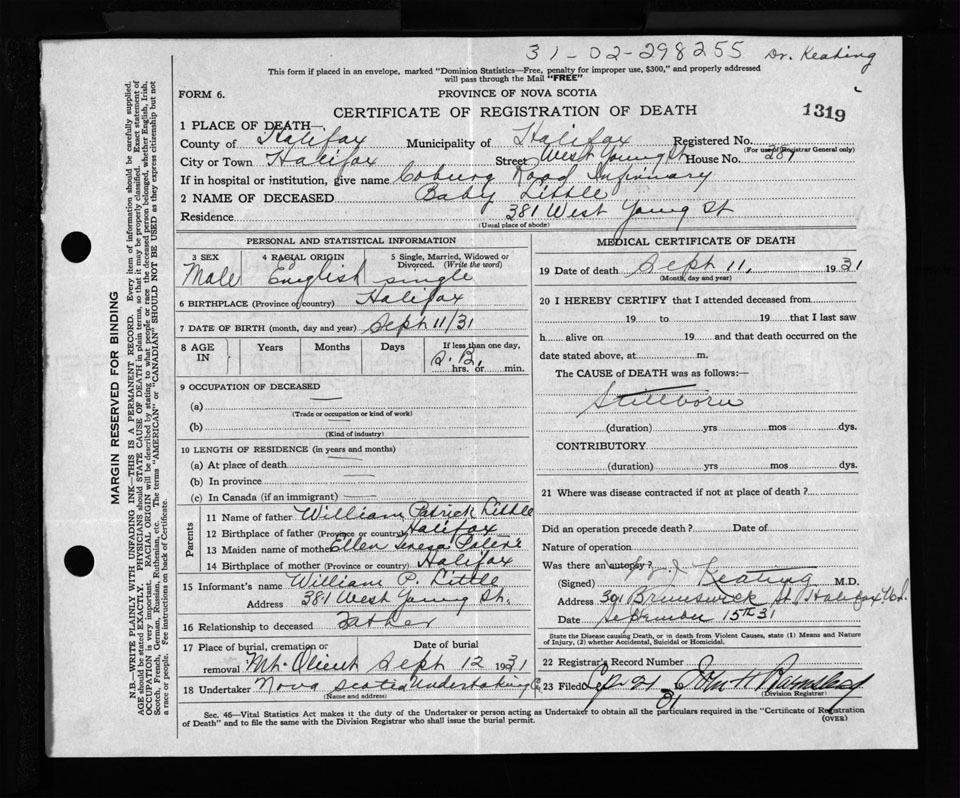 31-02-298255 Dr. Keating
This form if placed in an envelope, marked "Dominion Statistics—Free, penalty for improper use, $300," and properly addressed
will pass through the Mail "FREE"
FORM 6. PROVINCE OF NOVA SCOTIA
CERTIFICATE OF REGISTRATION OF DEATH 1319
1 PLACE OF DEATH—
County of Halifax Municipality of Halifax Registered No.
(For use of Registrar General only)
City or Town Halifax Street West Young St House No.
If in hospital or institution, give name Coburg Road Infirmary
2 NAME OF DECEASED Baby Little
Residence 381 West Young St
(Usual place of abode)
PERSONAL AND STATISTICAL INFORMATION
3 SEX 4 RACIAL ORIGIN 5 Single, Married, Widowed or
Divorced. (Write the word)
Male English single
6 BIRTHPLACE (Province or country) Halifax
7 DATE OF BIRTH (month, day and year) Sept 11/31
8 AGE IN Years Months Days If less than one day,
S.B. hrs. or min.
9 OCCUPATION OF DECEASED
(a) —
(Trade or occupation or kind of work)
(b) —
(Kind of industry)
10 LENGTH OF RESIDENCE (in years and months)
(a) At place of death
(b) In province
(c) In Canada (if an immigrant)
Parents
11 Name of father William Patrick Little
12 Birthplace of father (Province or country) Halifax
13 Maiden name of mother Ellen
14 Birthplace of mother (Province or country) Halifax
15 Informant's name William P. Little
Address 381 West Young St.
16 Relationship to deceased Father
17 Place of burial, cremation or Date of burial
removal Mt. Olivet Sept 12 1931
18 Undertaker Nova Scotia Undertaking Co
(Name and address)
MEDICAL CERTIFICATE OF DEATH
19 Date of death Sept 11, 1931
(Month, day and year)
20 I HEREBY CERTIFY that I attended deceased from
19 to 19 that I last saw
h alive on 19 and that death occurred on the
date stated above, at m.
The CAUSE of DEATH was as follows:—
Stillborn
(duration) yrs mos dys.
CONTRIBUTORY
(duration) yrs mos dys.
21 Where was disease contracted if not at place of death?
Did an operation precede death? Date of
Nature of operation
Was there an autopsy?
(Signed) Keating M.D.
Address 391 Brunswick St, Halifax N.S.
Date September 15TH 31
State the Disease causing Death, or in death from Violent Causes, state (1) Means and Nature
of Injury, (2) whether Accidental, Suicidal or Homicidal.
22 Registrar's Record Number
23 Filed Sep. 21 31 John H
(Division Registrar)
Sec. 46—Vital Statistics Act makes it the duty of the Undertaker or person acting as Undertaker to obtain all the particulars required in the "Certificate of Registration
of Death" and to file the same with the Division Registrar who shall issue the burial permit. (OVER)
MARGIN RESERVED FOR BINDING
N.B.—WRITE PLAINLY WITH UNFADING INK—THIS IS A PERMANENT RECORD. Every item of information should be carefully supplied.
AGE should be stated EXACTLY. PHYSICIANS should STATE CAUSE OF DEATH in plain terms, so that it may be properly classified. Exact statement of
OCCUPATION is very important. RACIAL ORIGIN will be described by stating to what people or race the deceased person belonged, whether English, Irish,
Scotch, French, German, Russian, Ruthenian, etc. The terms "AMERICAN" or "CANADIAN" SHOULD NOT BE USED as they express citizenship but not
a race or people. See instructions on back of Certificate.